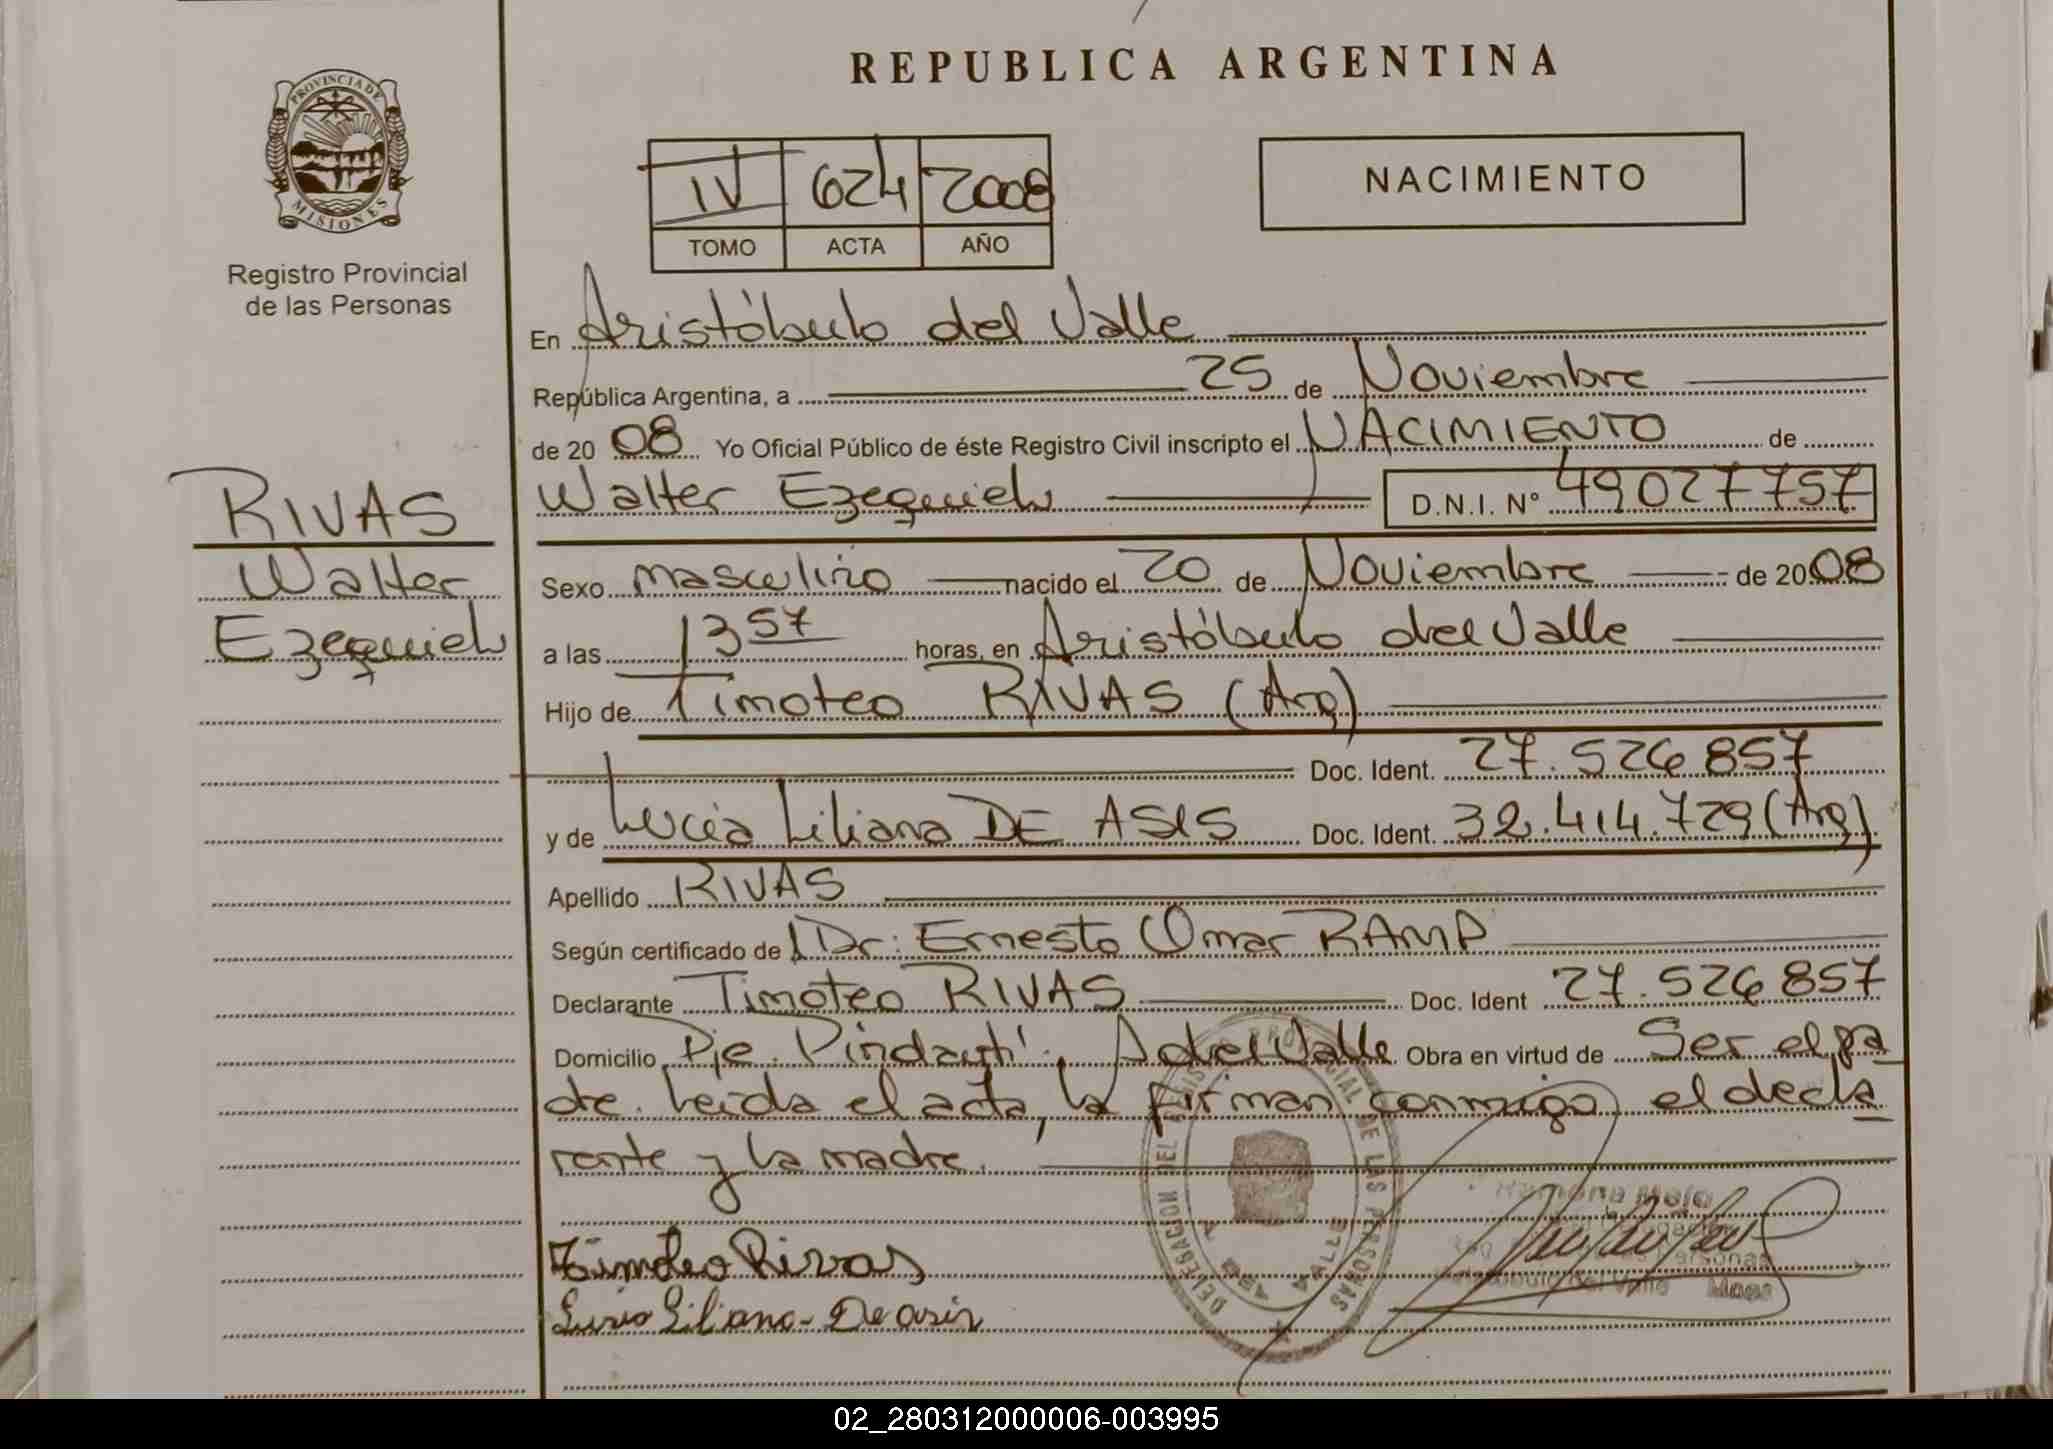 REPUBLICA ARGENTINA
PROVINCIA DE
MISIONES
Registro Provincial
de las Personas
IV 624 2008
TOMO ACTA AÑO
NACIMIENTO
En Aristóbulo del Valle
República Argentina, a 25 de Noviembre
de 2008 Yo Oficial Público de éste Registro Civil inscripto el NACIMIENTO de
Walter Ezequiel D.N.I. Nº 49027757
RIVAS
Walter
Ezequiel
Sexo masculino nacido el 20 de Noviembre de 2008
a las 13 57 horas, en Aristóbulo del Valle
Hijo de Timoteo RIVAS (Arg)
Doc. Ident. 27.526857
y de Lucia Liliana DE ASIS Doc. Ident. 32.414.729 (Arg)
Apellido RIVAS
Según certificado de Dr: Ernesto Omar RAMP
Declarante Timoteo RIVAS Doc. Ident 27.526857
Domicilio Pje. Pindaytí, A del Valle Obra en virtud de Ser el pa
dre. Leida el acta, la firman conmigo el decla
rante y la madre.
DELEGACION DEL REGISTRO PROVINCIAL DE LAS PERSONAS
VALLE
Timoteo Rivas
Lucia Liliana - De asis
02_280312000006-003995